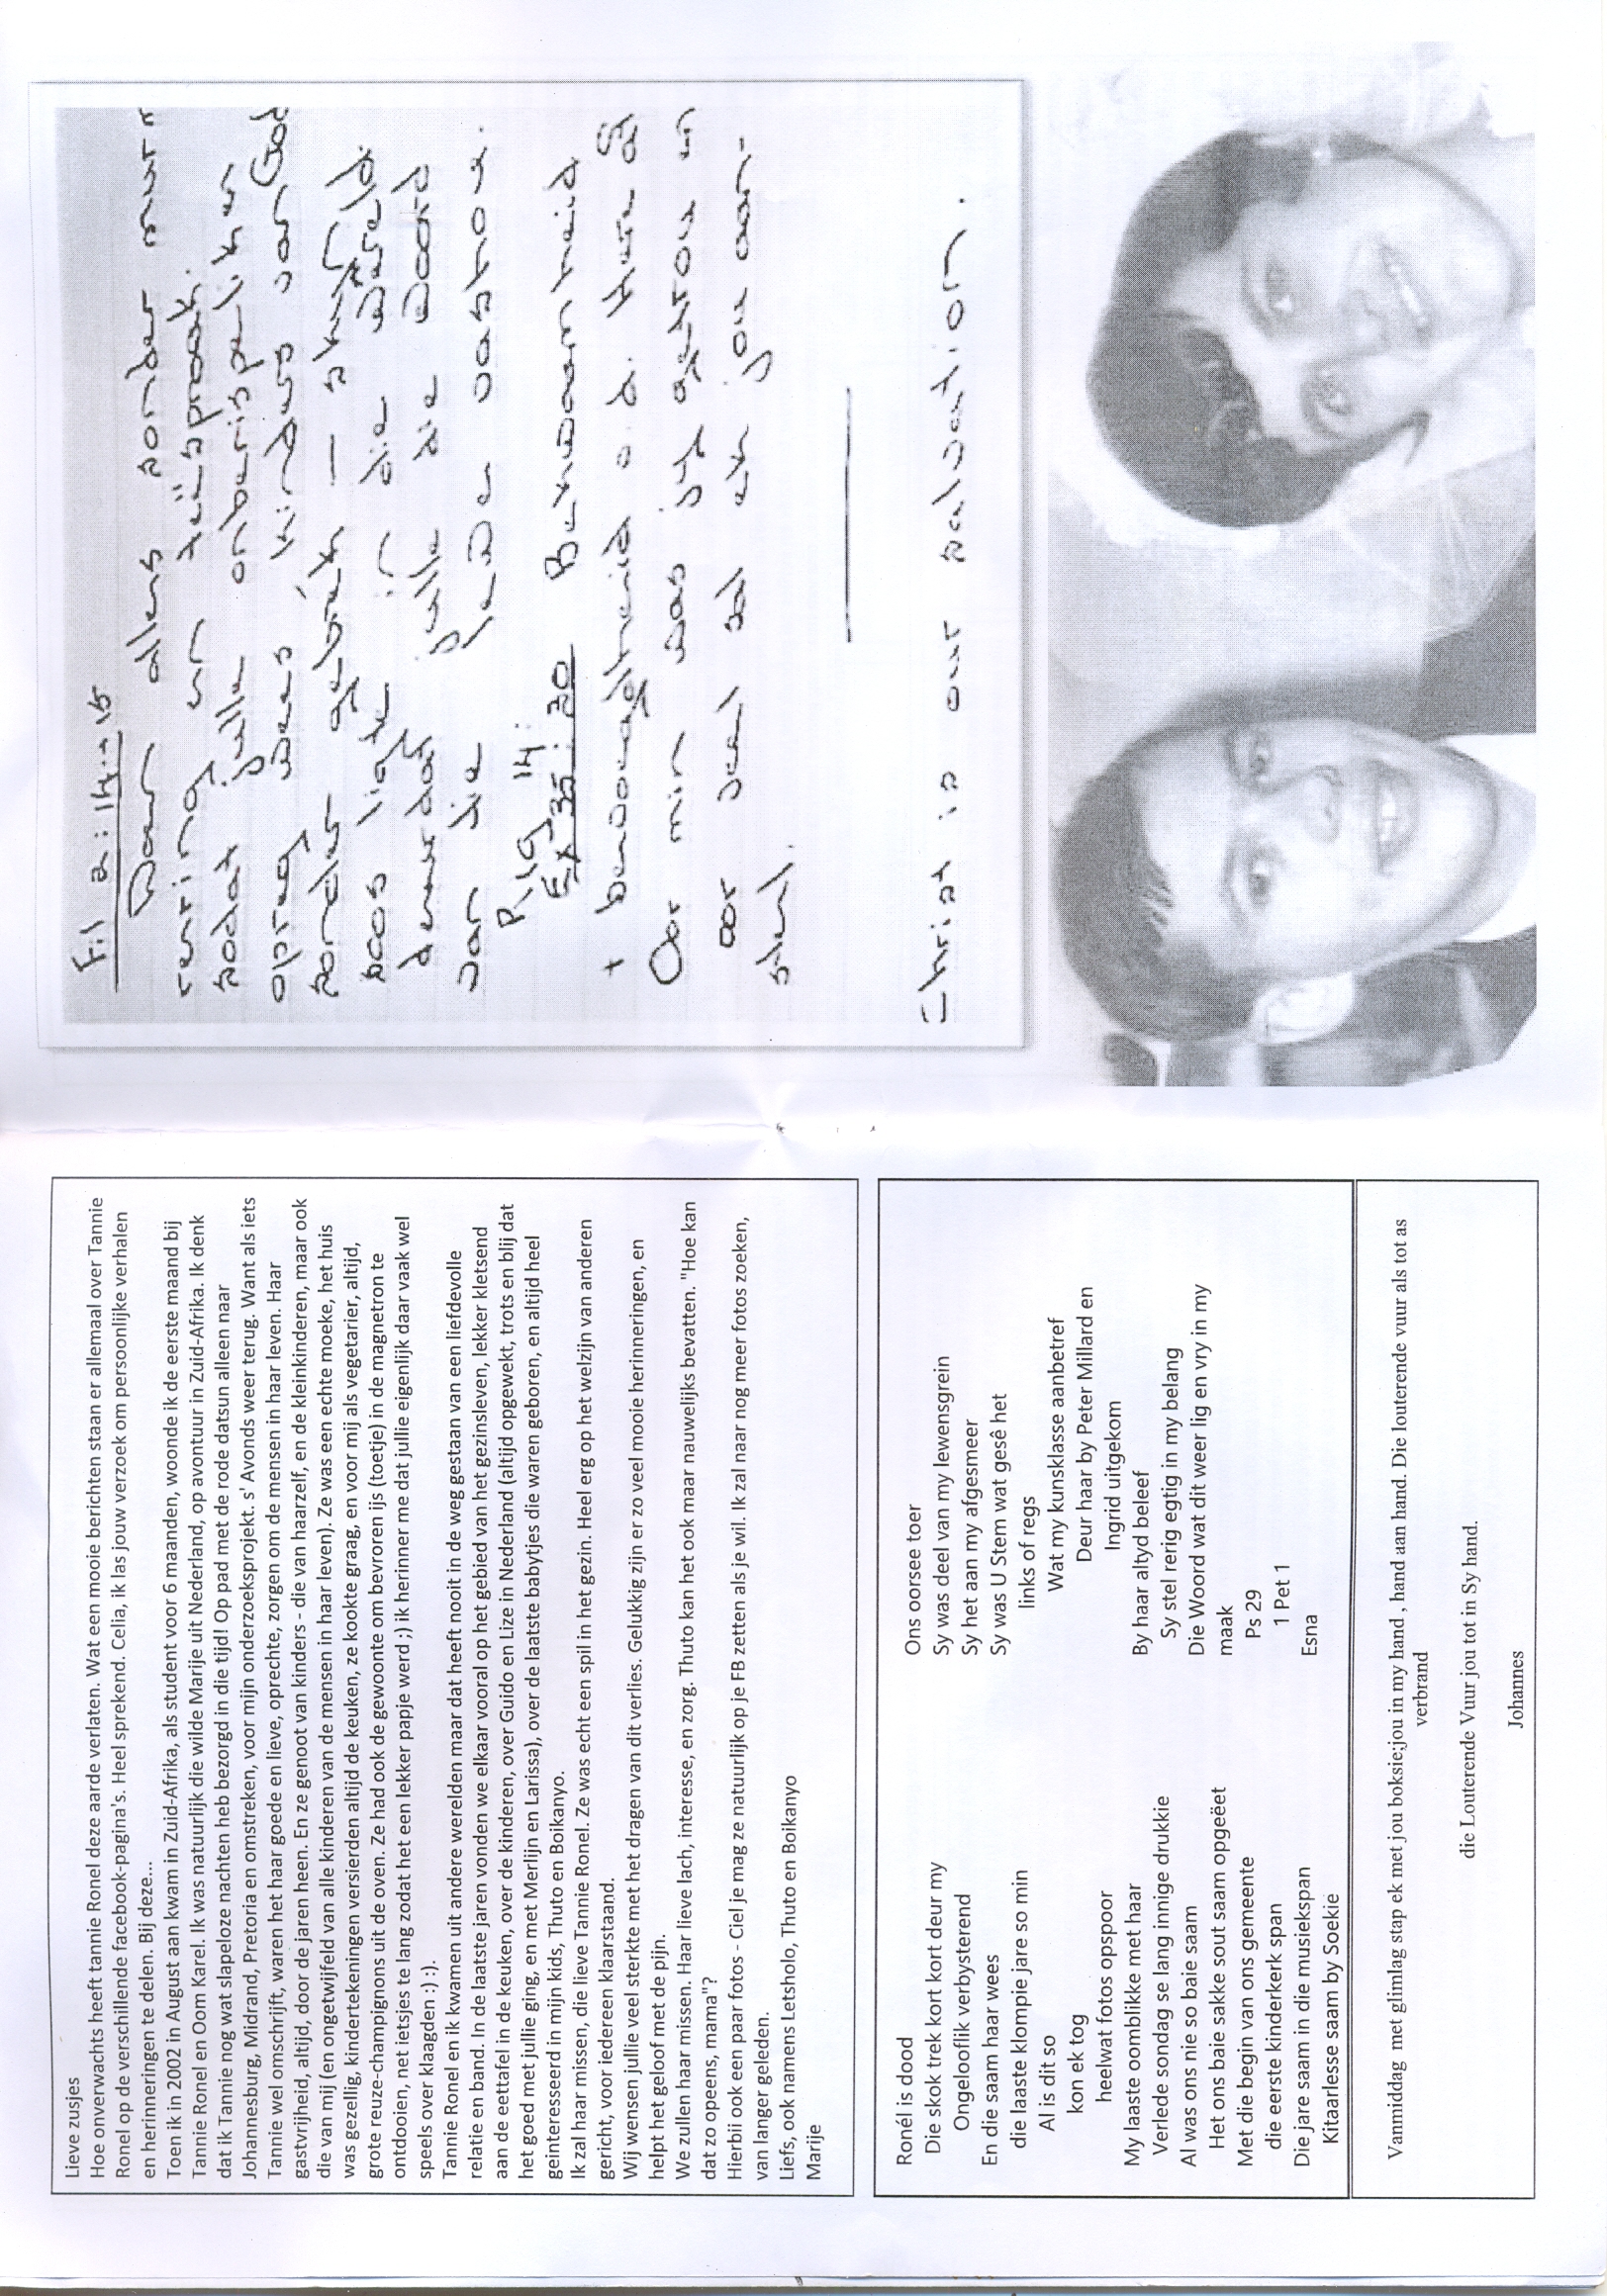 Lieve zusjes
Hoe onverwachts heeft tannie Ronel deze aarde verlaten. Wat een mooie berichten staan er allemaal over Tannie
Ronel op de verschillende facebook-pagina's. Heel sprekend. Celia, ik las jouw verzoek om persoonlijke verhalen
en herinneringen te delen. Bij deze...
Toen ik in 2002 in August aan kwam in Zuid-Afrika, als student voor 6 maanden, woonde ik de eerste maand bij
Tannie Ronel en Oom Karel. Ik was natuurlijk die wilde Marije uit Nederland, op avontuur in Zuid-Afrika. Ik denk
dat ik Tannie nog wat slapeloze nachten heb bezorgd in die tijd! Op pad met de rode datsun alleen naar
Johannesburg, Midrand, Pretoria en omstreken, voor mijn onderzoeksprojekt. s' Avonds weer terug. Want als iets
Tannie wel omschrijft, waren het haar goede en lieve, oprechte, zorgen om de mensen in haar leven. Haar
gastvrijheid, altijd, door de jaren heen. En ze genoot van kinders - die van haarzelf, en de kleinkinderen, maar ook
die van mij (en ongetwijfeld van alle kinderen van de mensen in haar leven). Ze was een echte moeke, het huis
was gezellig, kindertekeningen versierden altijd de keuken, ze kookte graag, en voor mij als vegetarier, altijd,
grote reuze-champignons uit de oven. Ze had ook de gewoonte om bevroren ijs (toetje) in de magnetron te
ontdooien, net ietsjes te lang zodat het een lekker papje werd ;) ik herinner me dat jullie eigenlijk daar vaak wel
speels over klaagden :) :).
Tannie Ronel en ik kwamen uit andere werelden maar dat heeft nooit in de weg gestaan van een liefdevolle
relatie en band. In de laatste jaren vonden we elkaar vooral op het gebied van het gezinsleven, lekker kletsend
aan de eettafel in de keuken, over de kinderen, over Guido en Lize in Nederland (altijd opgewekt, trots en blij dat
het goed met jullie ging, en met Merlijn en Larissa), over de laatste babytjes die waren geboren, en altijd heel
geinteresseerd in mijn kids, Thuto en Boikanyo.
Ik zal haar missen, die lieve Tannie Ronel. Ze was echt een spil in het gezin. Heel erg op het welzijn van anderen
gericht, voor iedereen klaarstaand.
Wij wensen jullie veel sterkte met het dragen van dit verlies. Gelukkig zijn er zo veel mooie herinneringen, en
helpt het geloof met de pijn.
We zullen haar missen. Haar lieve lach, interesse, en zorg. Thuto kan het ook maar nauwelijks bevatten. "Hoe kan
dat zo opeens, mama"?
Hierbij ook een paar fotos - Ciel je mag ze natuurlijk op je FB zetten als je wil. Ik zal naar nog meer fotos zoeken,
van langer geleden.
Liefs, ook namens Letsholo, Thuto en Boikanyo
Marije
Ronél is dood
Die skok trek kort kort deur my
Ongelooflik verbysterend
En die saam haar wees
die laaste klompie jare so min
Al is dit so
kon ek tog
heelwat fotos opspoor
My laaste oomblikke met haar
Verlede sondag se lang innige drukkie
Al was ons nie so baie saam
Het ons baie sakke sout saam opgeëet
Met die begin van ons gemeente
die eerste kinderkerk span
Die jare saam in die musiekspan
Kitaarlesse saam by Soekie
Ons oorsee toer
Sy was deel van my lewensgrein
Sy het aan my afgesmeer
Sy was U Stem wat gesê het
links of regs
Wat my kunsklasse aanbetref
Deur haar by Peter Millard en
Ingrid uitgekom
By haar altyd beleef
Sy stel rerig egtig in my belang
Die Woord wat dit weer lig en vry in my
maak
Ps 29
1 Pet 1
Esna
Vanmiddag met glimlag stap ek met jou boksie;jou in my hand , hand aan hand. Die louterende vuur als tot as
verbrand
die Louterende Vuur jou tot in Sy hand.
Johannes
Fil 2:14-15
Doen alles sonder murm
rering en teëspraak.
sodat julle onberispelik en
opreg wees kinders van God
sonder gebrek – skyn
soos ligte in die wêreld.
deurdat julle die woord
van die lewe vashou.
Ex 35:30 Bekwaamheid
+ bevoegdheid v. d. Here
Oor min was jy getrou en
oor veel sal ek jou aan-
stel.
Christ is our salvation.